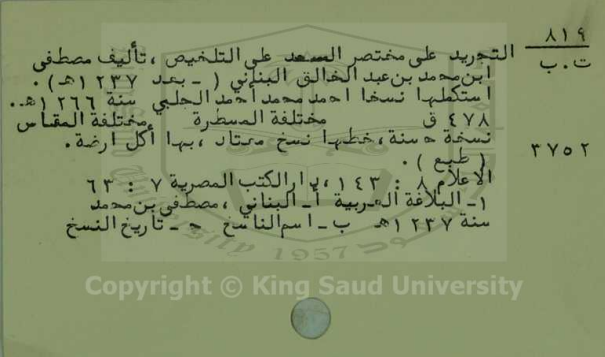 ٨١٩
ت . ب
التجريد على مختصر السعد على التلخيص ، تأليف مصطفى
ابن محمد بن عبد الخالق البناني ( ـ بعد ١٢٣٧هـ ) .
استكملها نسخا احمد محمد أحمد الحلبي سنة ١٢٦٦هـ .
٤٧٨ ق مختلفة المسطرة مختلفة المقاس
نسخة حسنة ، خطها نسخ معتاد ، بها أكل ارضة .
٣٧٥٢
( طبع ) .
الاعلام ٨ : ١٤٣ ، دار الكتب المصرية ٧ : ٦٣
١ـ البلاغة العربية أ ـ البناني ، مصطفى بن محمد
سنة ١٢٣٧هـ ب ـ اسم الناسخ ج ـ تاريخ النسخ
1957
Copyright © King Saud University